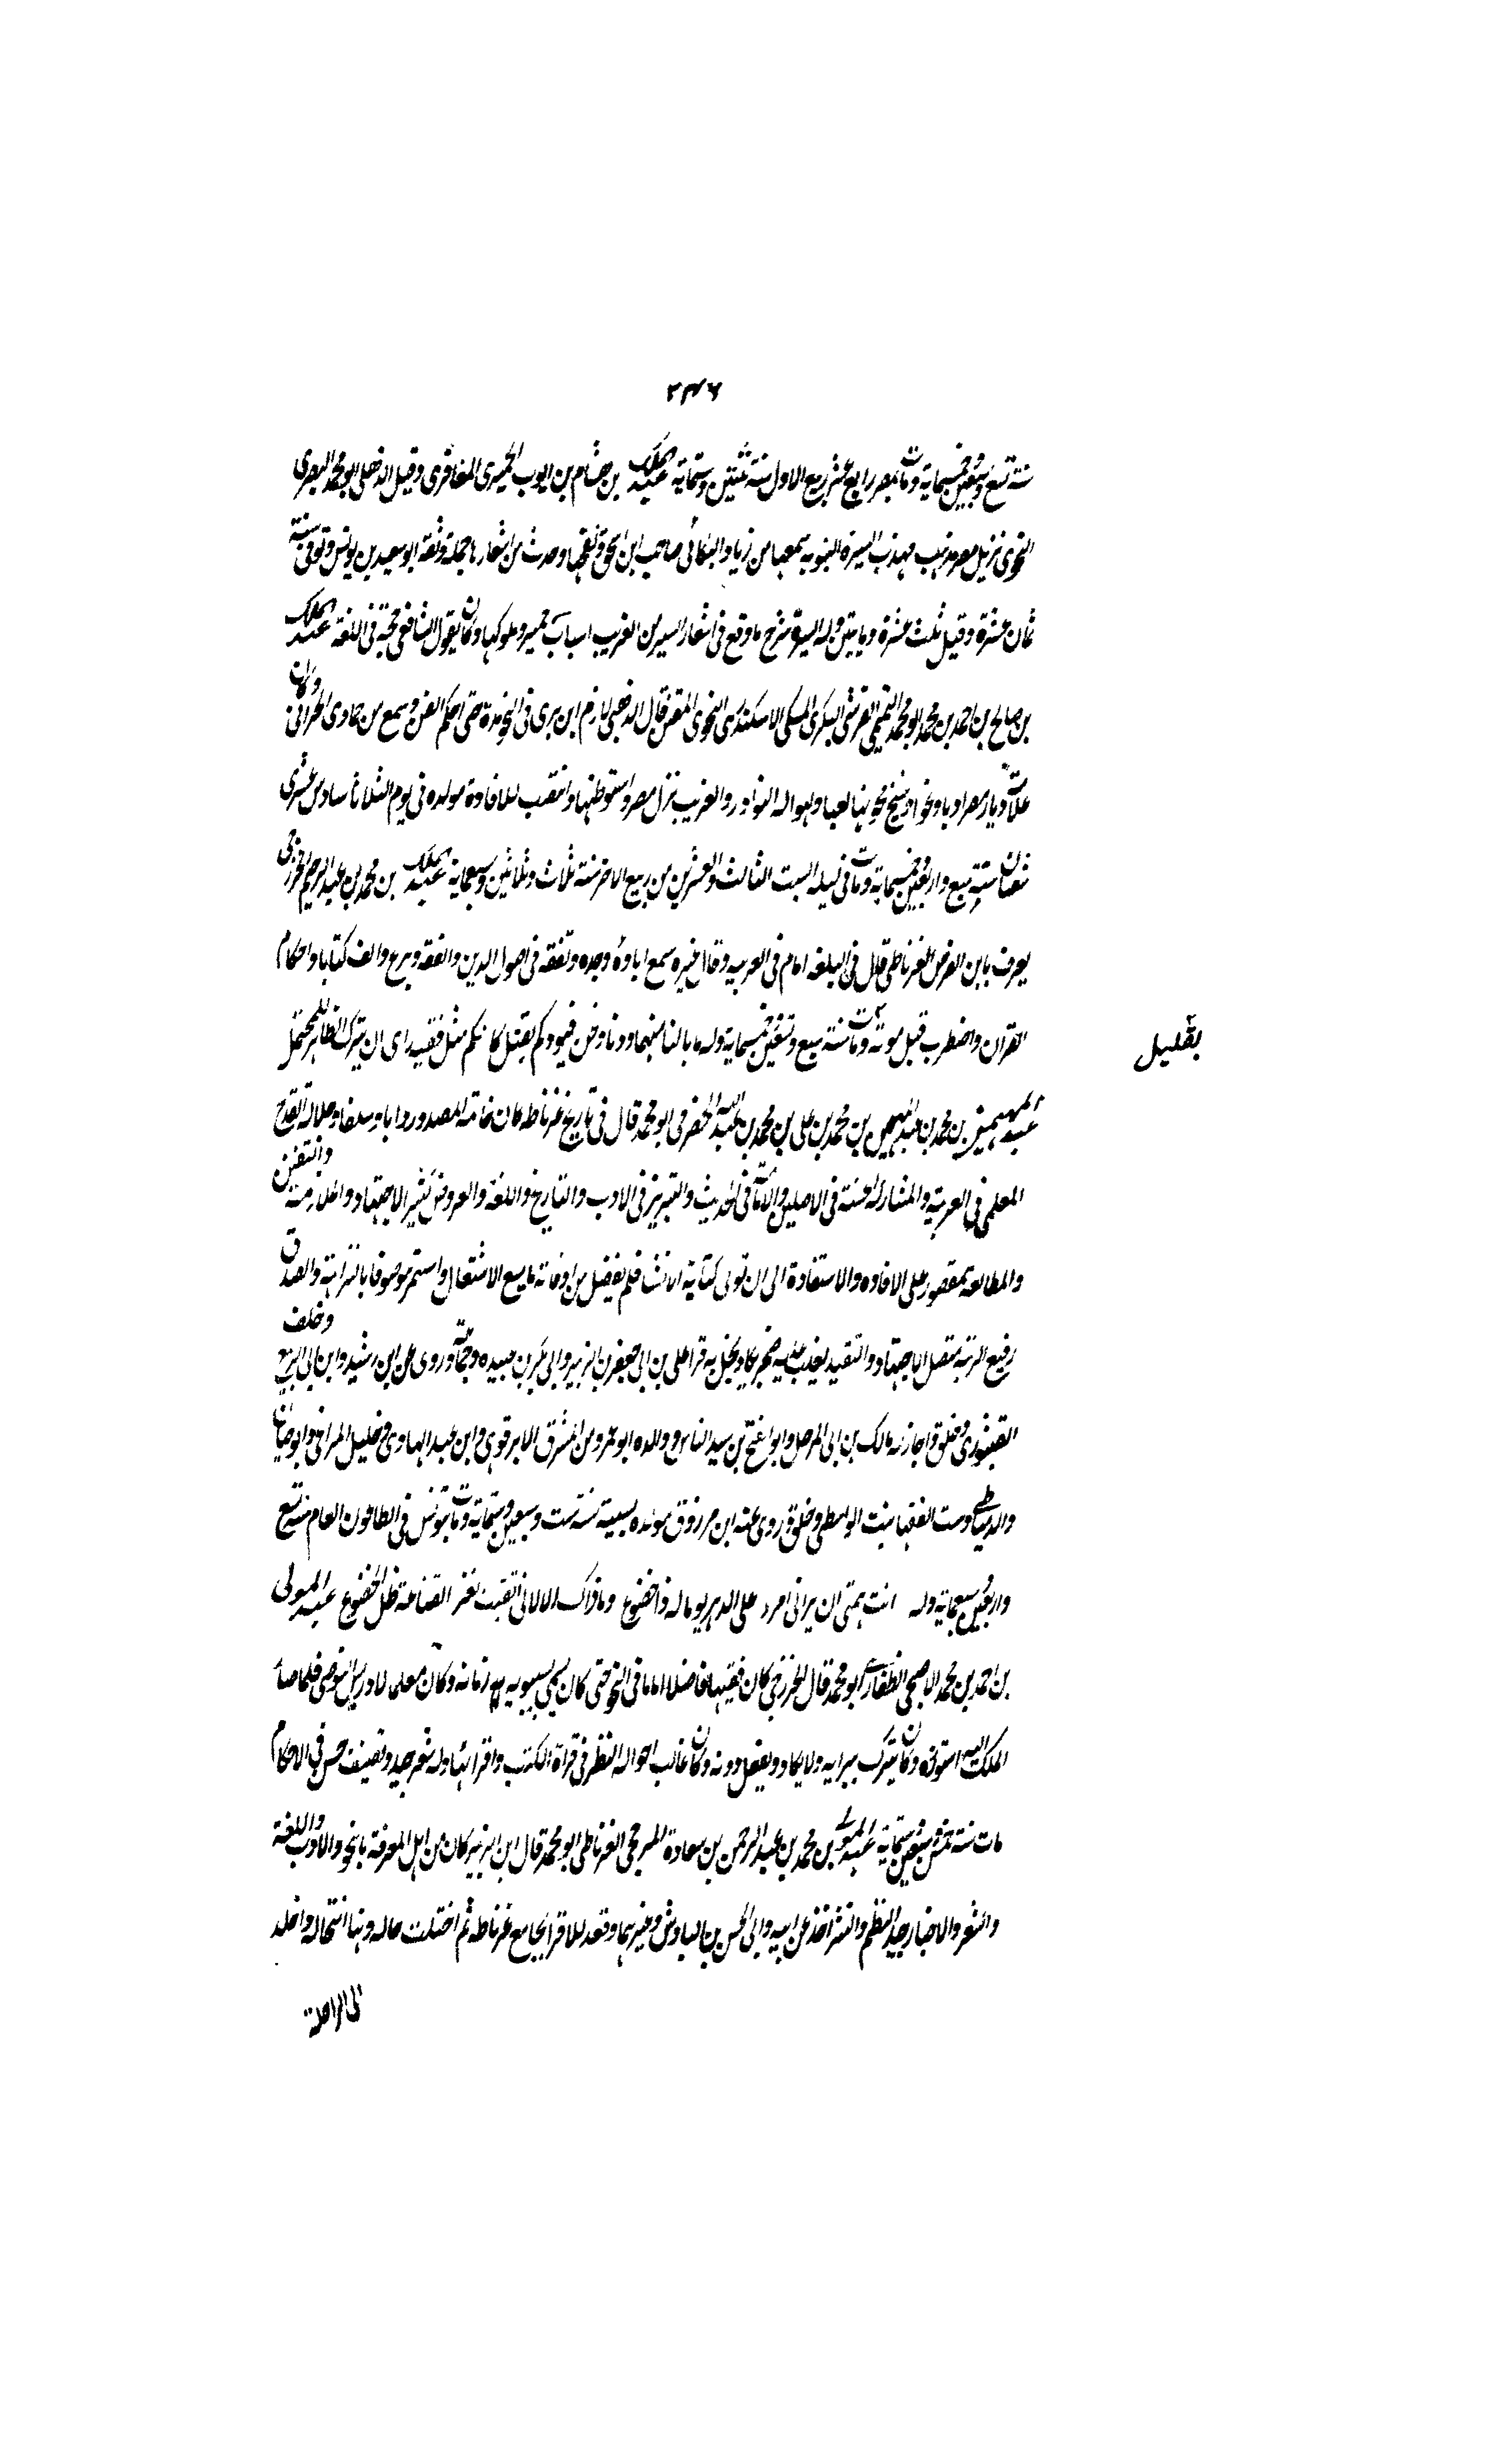 ٢٣٦
سنة تسع وسبعين وخمسماية ومات بمصر رابع عشر ربيع الاول سنة ثنتين وستماية عبد الملك بن هشام بن ايوب الحميرى المعافرى وقيل الذهلى ابو محمد البصرى
النحوى نزيل مصر مهذب السيرة النبوية سمعها من زياد البكائى صاحب ابن اسحق ونقحها وحذف من اشعارها جملة وثقه ابو سعيد بن يونس وتوفى سنة
ثمان عشرة وقيل ثلث عشرة وماتين وله السيرة شرح ما وقع فى اشعار السير من الغريب انساب حمير وملوكها وكان يقول الشافعى حجة فى اللغة عبد الملك
بن صالح بن احمد بن محمد ابو محمد التيمى القرشى البكرى المكى الاسكندرى النحوى المقرى قال الذهبى لازم ابن برى فى النحو مدة حتى احكم الفن وسمع من حماد الحرانى وكان
علامة ديار مصر ادبا ونحوا وشيخ نحو النوادر والغريب نزل مصر واستوطنها وانتصب للافادة مولده فى يوم الثلاثا سادس عشرى
شعبان سنة سبع واربعين وخمسماية ومات فى ليلة السبت الثالث والعشرين من ربيع الاخر سنة ثلاث وثلاثين وستماية عبد المنعم بن محمد بن عبد الرحيم الخزرجى
يعرف بابن الفرس الغرناطى قال فى البلغة امام فى العربية وقال غيره سمع اباه وجده وتفقه فى اصول الدين والفقه وبرع والف كتابا واحكام
القران واضطرب قبل موته ومات سنة سبع وتسعين وخمسماية وله
بقليل
عبد المهيمن بن محمد بن عبد المهيمن بن محمد بن على بن محمد بن عبد الله الحضرمى ابو محمد قال فى تاريخ غرناطة كان خاتمة الصدور ذاتا وسلفا وجلالة القدح
المعلى فى العربية والمشاركة حسنة فى الاصلين والامامة فى الحديث والتبريز فى الادب والتاريخ واللغة والعروض كثير الاجتهاد والملازمة والتفنن
والمطالعة مقصور على الافادة والاستفادة الى ان تولى كتابة الانشا فلم يفضل من اوقاته ما يسع الاشتغال واستمر موصوفا بالنزاهة والصدق
رفيع الرتبة متصل الاجتهاد والتقييد قرا على بن ابى جعفر بن الزبير وابى بكر بن عبيدة وجماعة وروى عن ابن رشيد وابن ابى الربيع وخلف
القبتورى وخلق واجاز له مالك بن المرحل وابو الفتح بن سيد الناس ووالده ابو عمرو ومن المشرق الابرقوهى وابن عبد الهادى وخليل المراغى وابو حيان
والدمياطى وست الفقها بنت الواسطى وخلق روى عنه ابن مرزوق مولده بسبتة سنة ست وسبعين وستماية ومات بتونس فى الطاعون العام سنة تسع
واربعين وسبعماية وله ابت همتى ان يرانى امرء على الدهر يوما له ذا خضوع وما ذاك الا لانى اتقيت بعز القناعة ذل الخضوع عبد المولى
بن احمد بن محمد الاصبحى الظفارى ابو محمد قال الخزرجى كان فقيها فاضلا اماما فى النحو حتى كان يسمى سيبويه زمانه وكان معلما لادريس الحبوضى فلما صار
الملك اليه استوزره وكان يتبرك برايه ولا يكاد يفعل دونه وكان غالب احواله النظر فى قراة الكتب واقرائها وله شعر جيد وتصنيف حسن فى الاحكام
مات سنة وستماية عبد المولى بن محمد بن عبد الرحمن بن سعادة الغرناطى ابو محمد قال ابن الزبير كان من اهل المعرفة بالنحو والادب واللغة
والشعر والاخبار جيد النظم والنثر اخذ عن ابيه وابى الحسن بن الباذش وغيرهما وقعد للاقرا بجامع غرناطة ثم اختلت حاله واخلد
الى الراحة